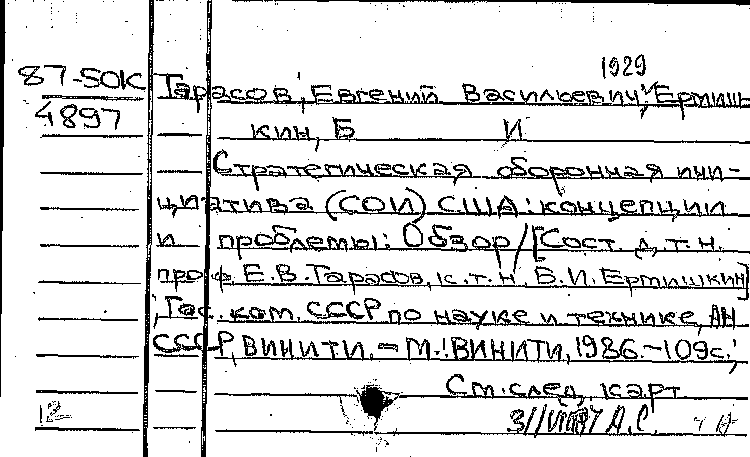 1929
87-50К Тарасов, Евгений Васильевич, Ермиш-
4897
кин, Б И
Стратегическая оборонная ини-
циатива (СОИ) США: концепции
и проблемы: Обзор / [Сост. д.т.н.
проф. Е.В. Тарасов, к.т.н. Б.И. Ермишкин]
; Гос. ком. СССР по науке и технике, АН
СССР, ВИНИТИ. – М.: ВИНИТИ, 1986. – 109 с.;
См. след. карт.
12 А.С.